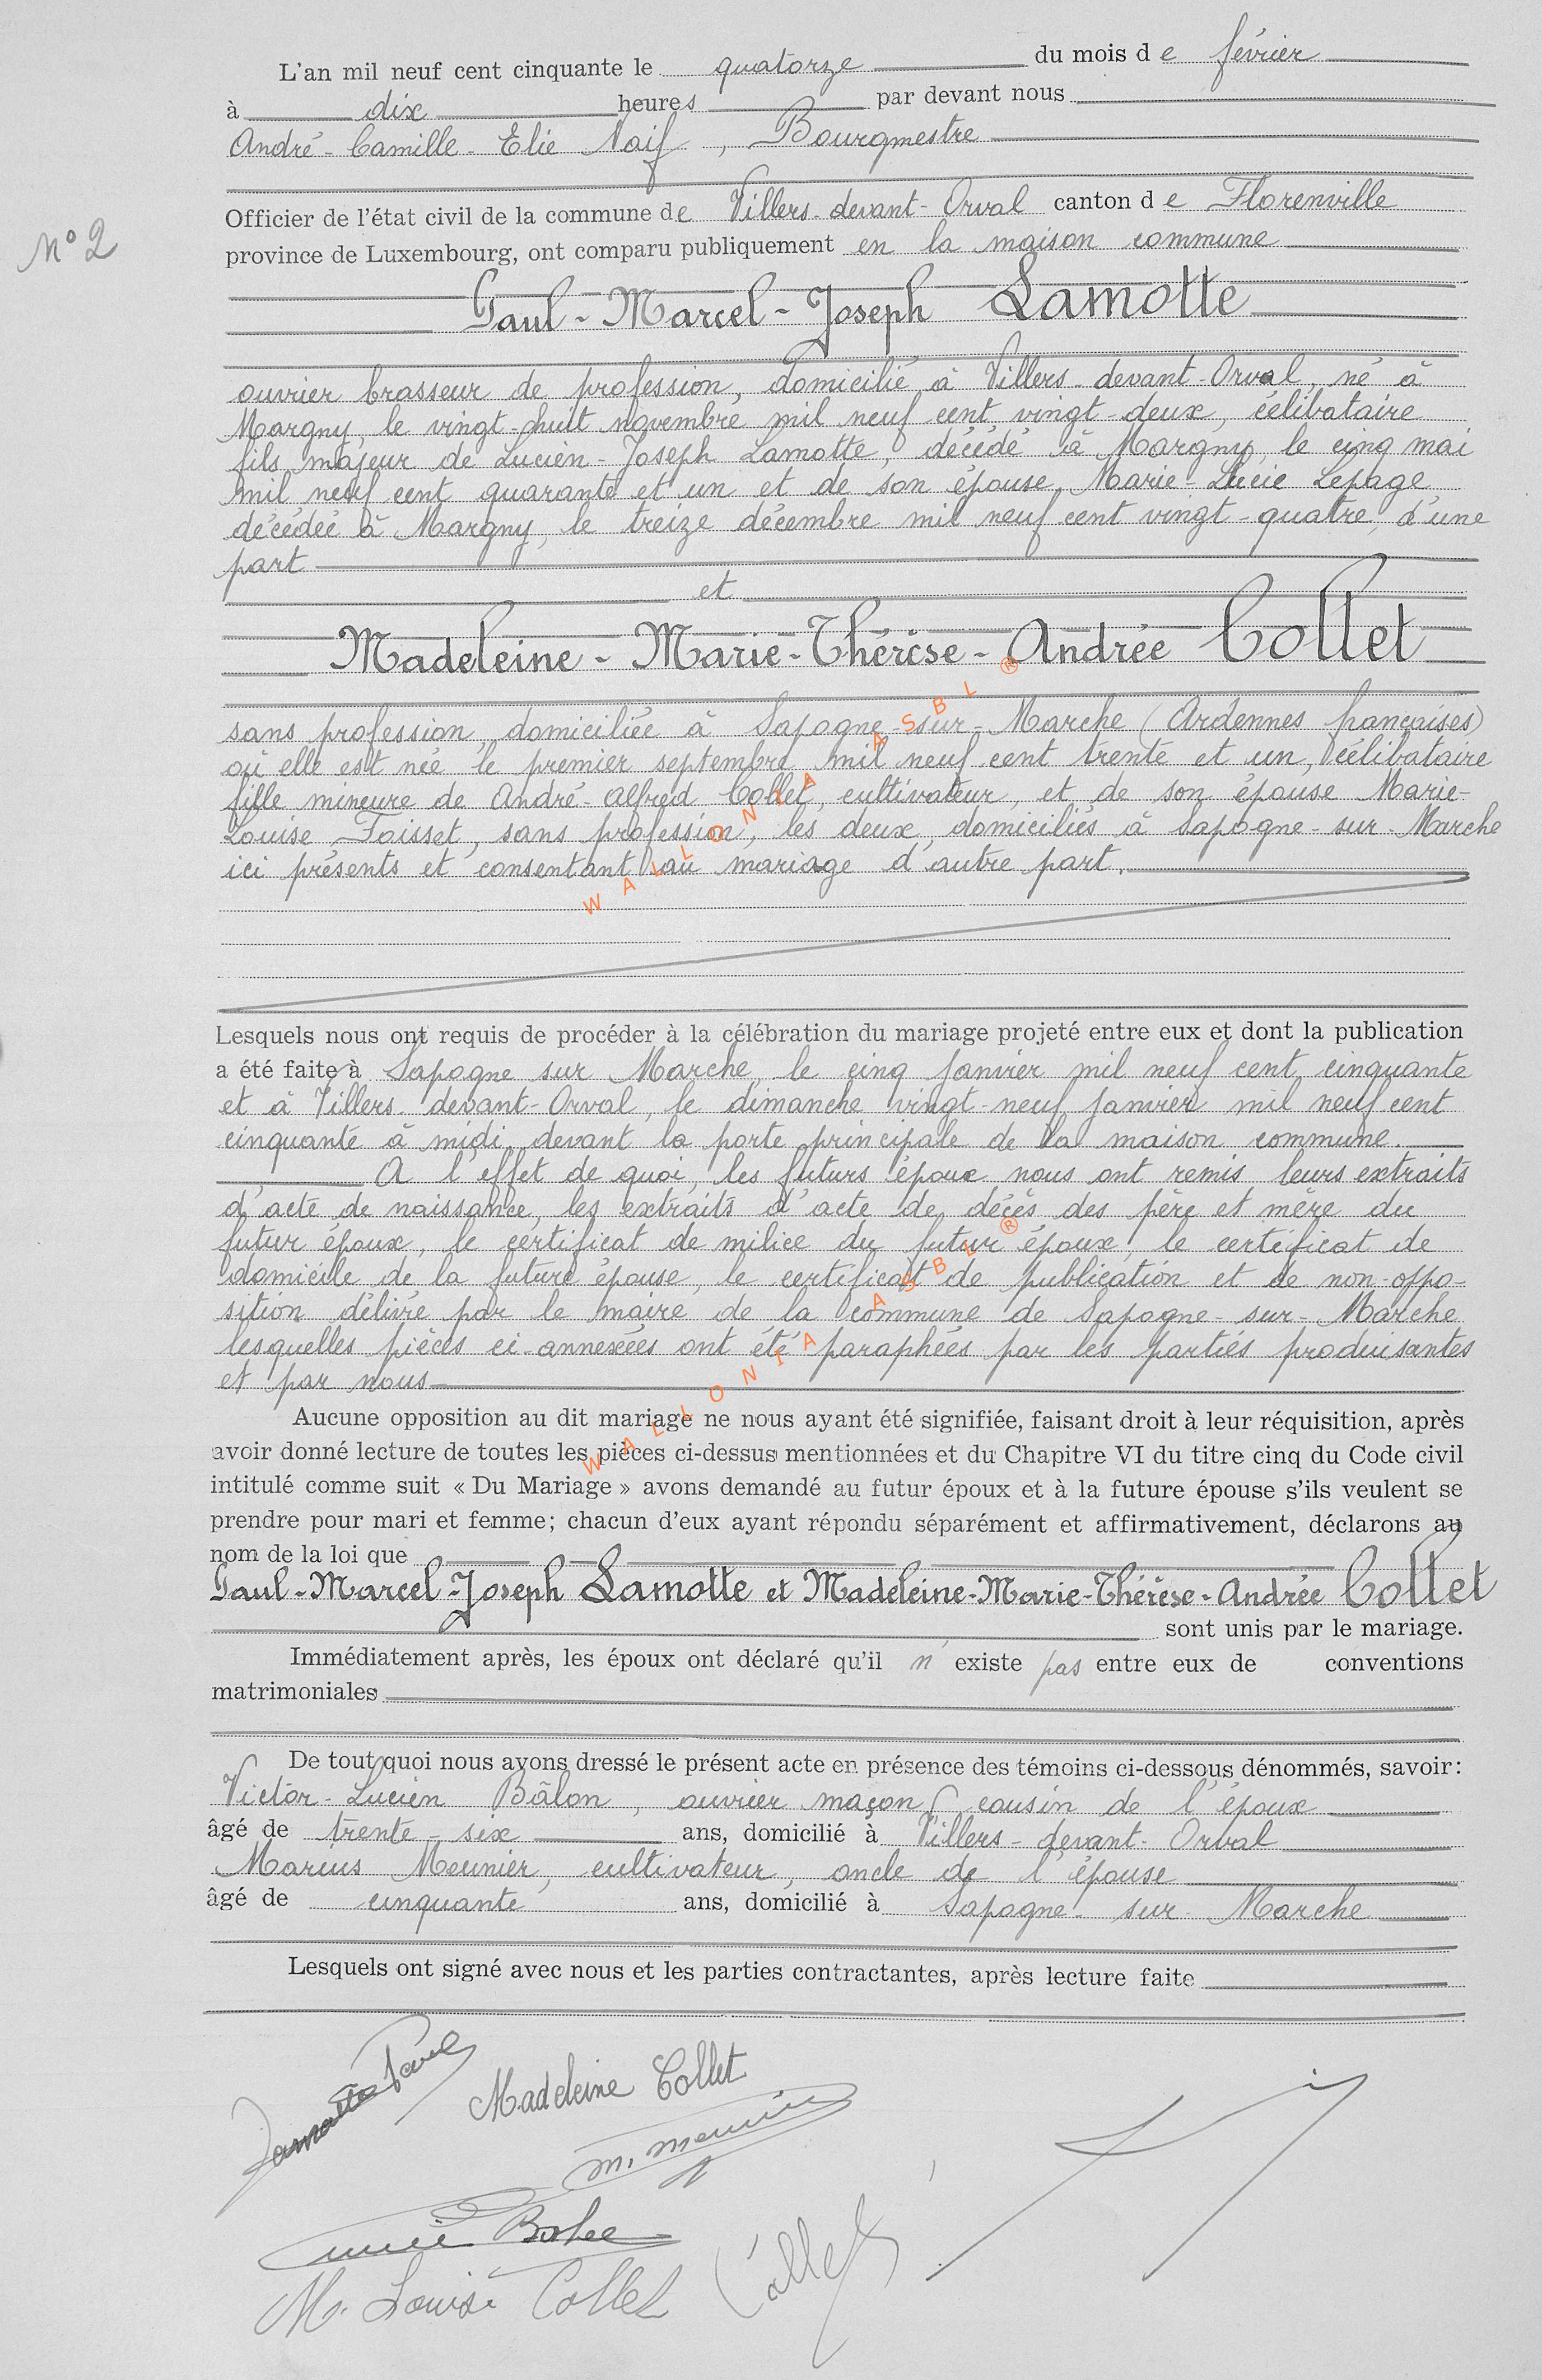 L'an mil neuf cent cinquante le quatorze du mois de février
à dix heures par devant nous
André-Camille-Elie Naif, Bourgmestre
Officier de l'état civil de la commune de Villers-devant-Orval canton de Florenville
N° 2
province de Luxembourg, ont comparu publiquement en la maison commune
Paul-Marcel-Joseph Lamotte
ouvrier brasseur de profession, domicilié à Villers-devant-Orval, né à
Margny, le vingt-huit novembre mil neuf cent vingt-deux, célibataire
fils majeur de Lucien-Joseph Lamotte, décédé à Margny, le cinq mai
mil neuf cent quarante et un et de son épouse Marie-Lucie Lepage
décédée à Margny, le treize décembre mil neuf cent vingt-quatre, d'une
part
et
Madeleine-Marie-Thérèse-Andrée Collet
sans profession, domiciliée à Sapogne-sur-Marche (Ardennes françaises)
où elle est née le premier septembre mil neuf cent trente et un, célibataire
fille mineure de André-Alfred Collet, cultivateur, et de son épouse Marie-
Louise Toisset, sans profession, les deux domiciliés à Sapogne-sur-Marche
ici présents et consentant au mariage d'autre part.
WALLONIA ASBL ®
Lesquels nous ont requis de procéder à la célébration du mariage projeté entre eux et dont la publication
a été faite à Sapogne sur Marche, le cinq janvier mil neuf cent cinquante
et à Villers-devant-Orval, le dimanche vingt-neuf janvier mil neuf cent
cinquante à midi devant la porte principale de la maison commune.
A l'effet de quoi, les futurs époux nous ont remis leurs extraits
d'acte de naissance, les extraits d'acte de décès des père et mère du
futur époux, le certificat de milice du futur époux, le certificat de
domicile de la future épouse, le certificat de publication et de non-oppo-
sition délivré par le maire de la commune de Sapogne-sur-Marche
lesquelles pièces ci-annexées ont été paraphées par les parties produisantes
et par nous
WALLONIA ASBL ®
Aucune opposition au dit mariage ne nous ayant été signifiée, faisant droit à leur réquisition, après
avoir donné lecture de toutes les pièces ci-dessus mentionnées et du Chapitre VI du titre cinq du Code civil
intitulé comme suit « Du Mariage » avons demandé au futur époux et à la future épouse s'ils veulent se
prendre pour mari et femme; chacun d'eux ayant répondu séparément et affirmativement, déclarons au
nom de la loi que
Paul-Marcel-Joseph Lamotte et Madeleine-Marie-Thérèse-Andrée Collet
sont unis par le mariage.
Immédiatement après, les époux ont déclaré qu'il n'existe pas entre eux de conventions
matrimoniales
De tout quoi nous avons dressé le présent acte en présence des témoins ci-dessous dénommés, savoir:
Victor-Lucien Bâlon, ouvrier maçon, cousin de l'époux
âgé de trente-six ans, domicilié à Villers-devant-Orval
Marius Meunier, cultivateur, oncle de l'épouse
âgé de cinquante ans, domicilié à Sapogne-sur-Marche
Lesquels ont signé avec nous et les parties contractantes, après lecture faite
Lamotte Paul
Madeleine Collet
M. Meunier
M. Louise Collet
Collet